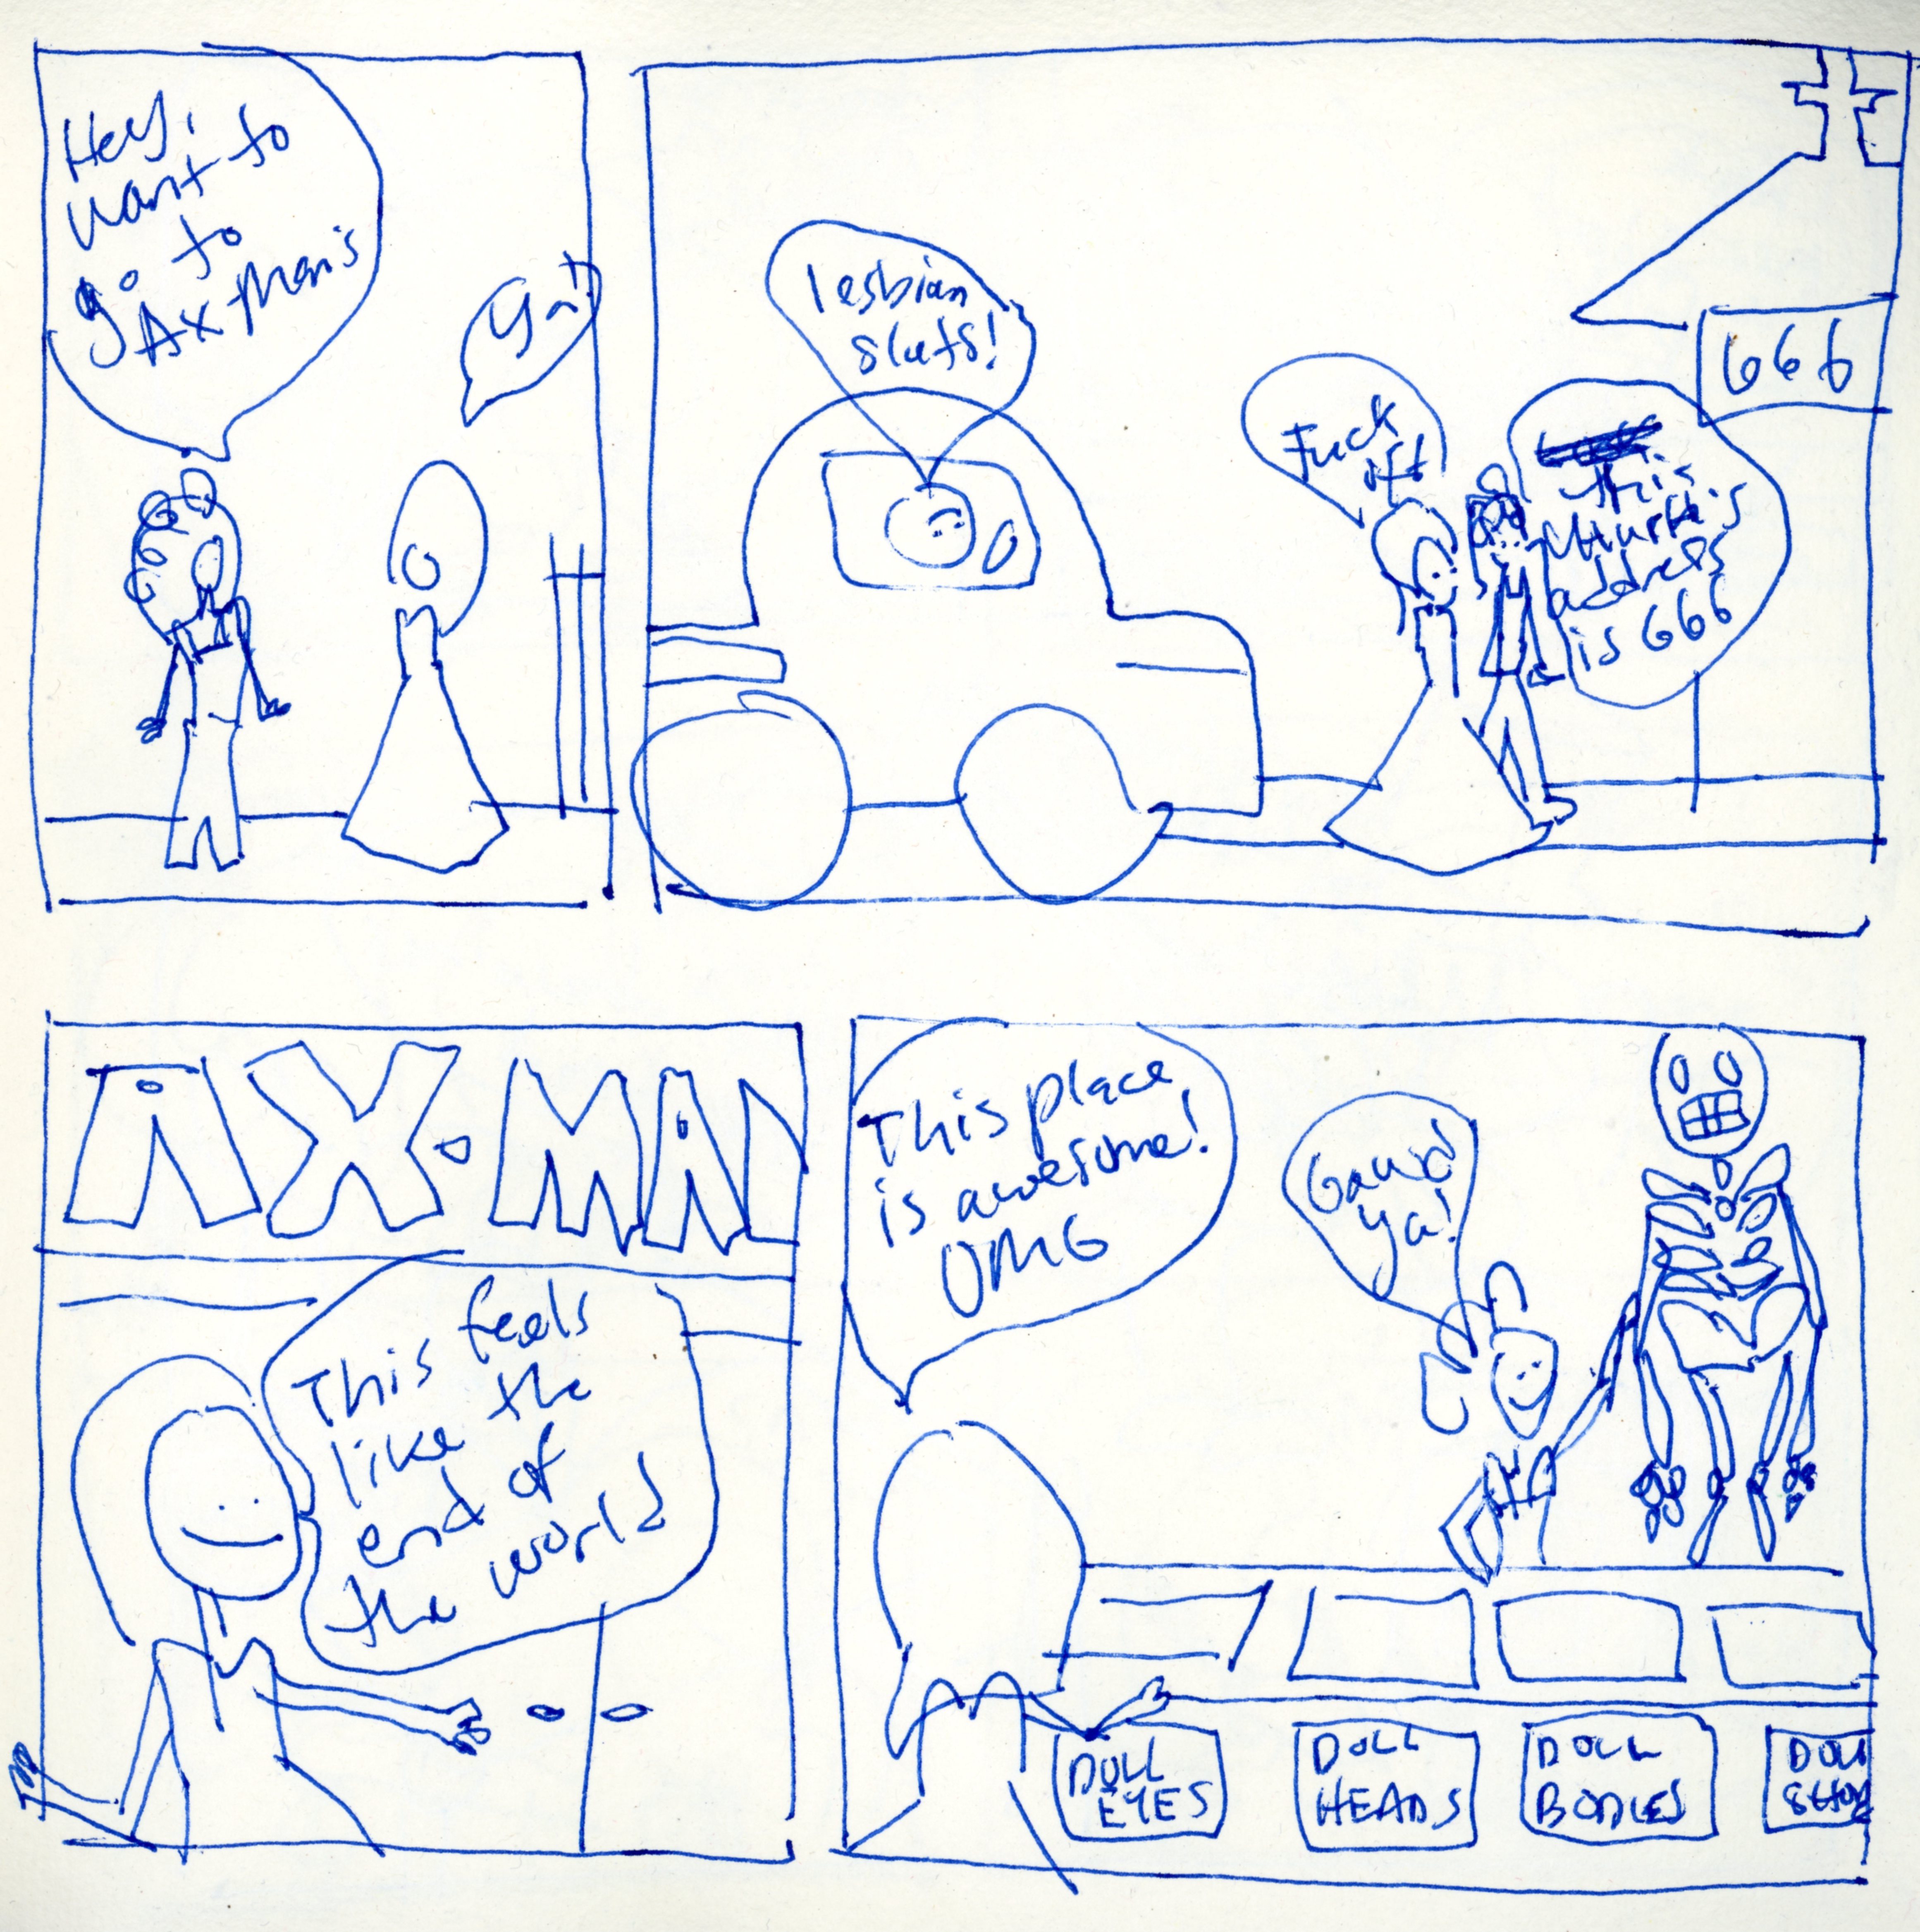 Hey,
want to
go to
Ax-Man's
ya!
lesbian
sluts!
Fuck
off
this
church's
address
is 666
666
AX-MAN
This feels
like the
end of
the world
This place
is awesome!
OMG
Gawd
ya!
DOLL
EYES
DOLL
HEADS
DOLL
BODIES
DOLL